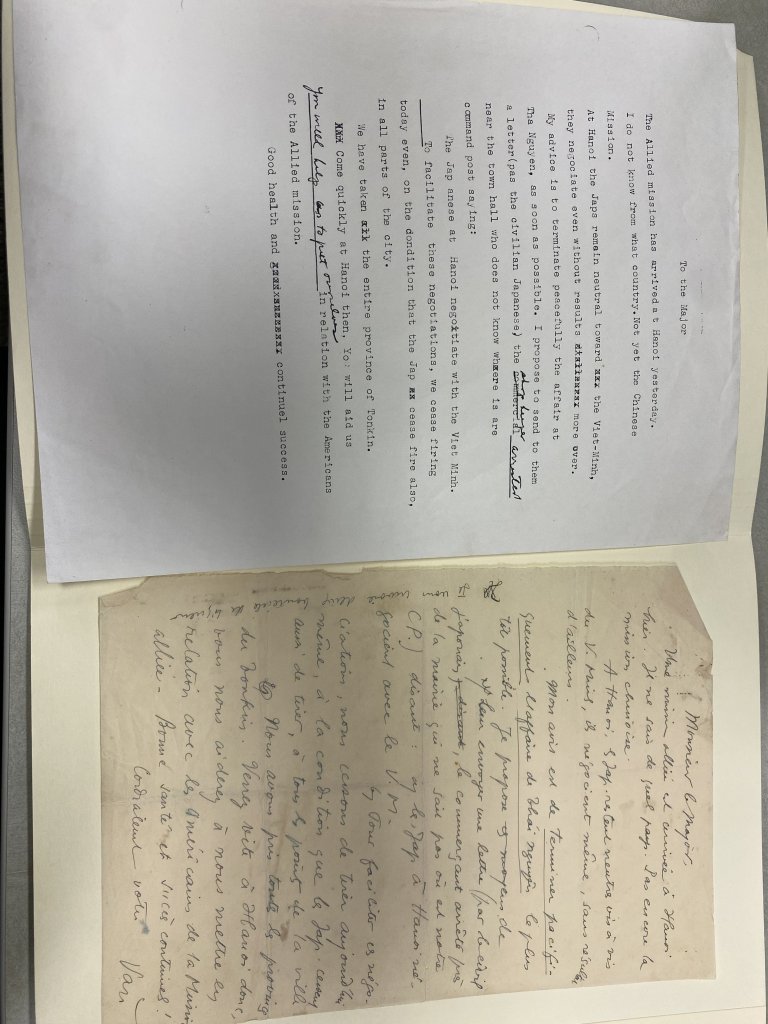 To the Major
The Allied mission has arrived at Hanoi yesterday.
I do not know from what country.Not yet the Chinese
Mission.
At Hanoi the Japs remain neutral toward the Viet-Minh,
they negociate even without results more over.
My advice is to terminate peacefully the affair at
Tha Nguyen, as soon as possible. I propose to send to them
a letter(pas the civilian Japanese) the commercial arrested
near the town hall who does not know where is are
command post saying:
The Jap anese at Hanoi negotiate with the Viet Minh.
To facilitate these negotiations, we cease firing
today even, on the dondition that the Jap cease fire also,
in all parts of the city.
We have taken the entire province of Tonkin.
Come quickly at Hanoi then, You will aid us
You will help us to put ourselves in relation with the Americans
of the Allied mission.
Good health and continuel success.
Monsieur le Major,
Une mission alliée est arrivée à Hanoi
hier. Je ne sais de quel pays. Pas encore la
mission chinoise.
A Hanoi, les Jap. restent neutres vis à vis
du V. Minh, ils négocient même, sans résultat
d'ailleurs.
Mon avis est de terminer pacifi-
quement l'affaire de Thái Nguyên le plus
tôt possible. Je propose de
leur envoyer une lettre (par le civil
japonais, le commerçant arrêté près
de la mairie qui ne sait pas où est notre
C.P.) disant: les Jap. à Hanoi né-
gocient avec le V.M.
Pour faciliter ces négo-
ciations, nous cessons de tirer aujourd'hui
même, à la condition que les Jap. cessent
aussi de tirer, à tous les points de la ville
Nous avons pris toutes les provinces
du Tonkin. Venez vite à Hanoi donc,
vous nous aiderez à nous mettre en
relation avec les Américains de la Mission
alliée - Bonne santé et succès continuel!
Cordialement votre
Van